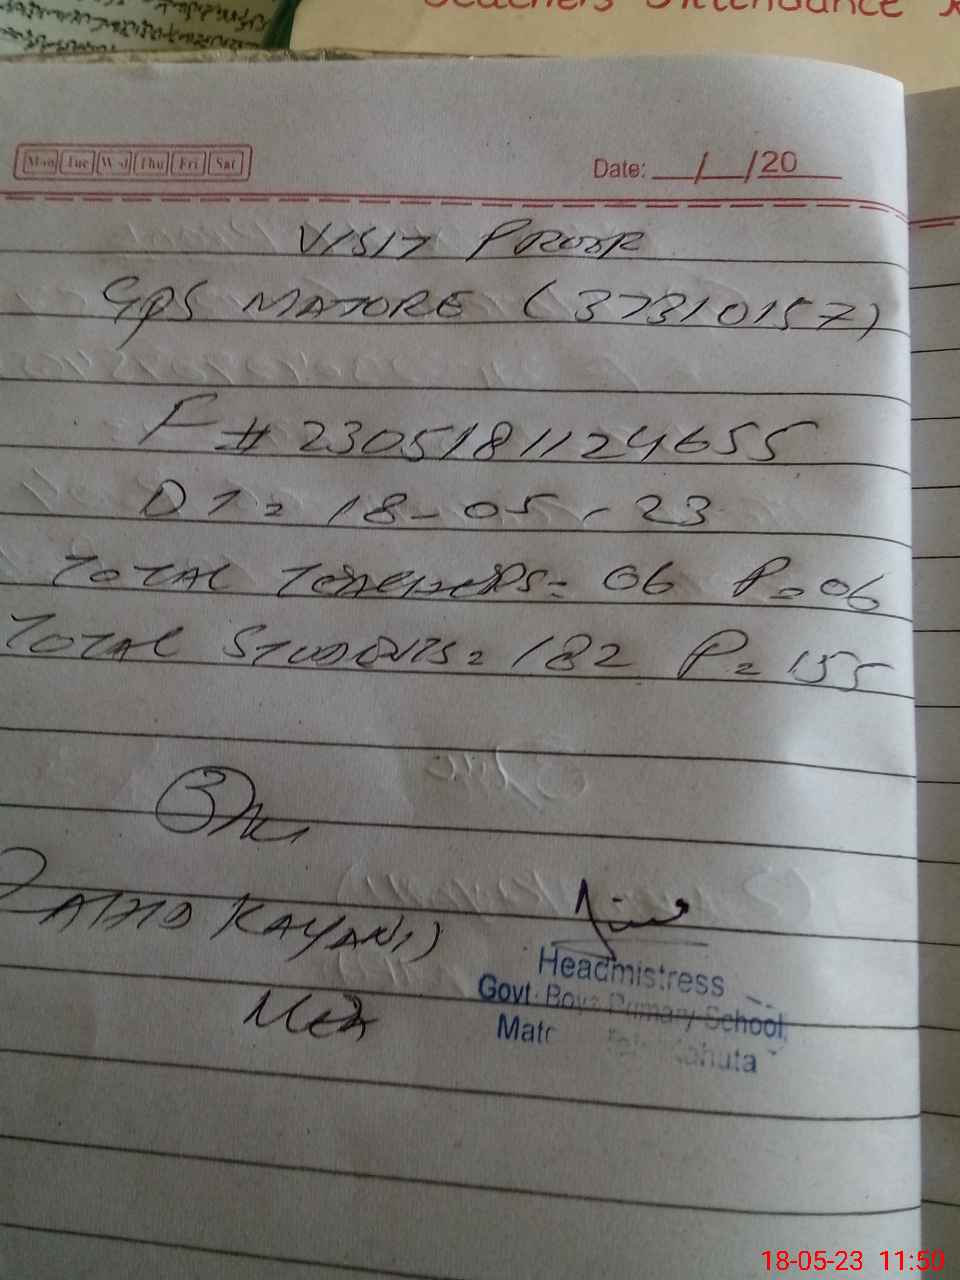 Teachers Attendance
Mon Tue Wed Thu Fri Sat
Date: __/__/20
VISIT PROOF
GPS MATORE (37310157)
F # 2305181124655
DT = 18-05-23
TOTAL TEACHERS = 06 P = 06
TOTAL STUDENTS = 182 P = 155
ZAHID KAYANI
MEA
Headmistress
Govt. Boys Primary School
Kahuta
18-05-23 11:50